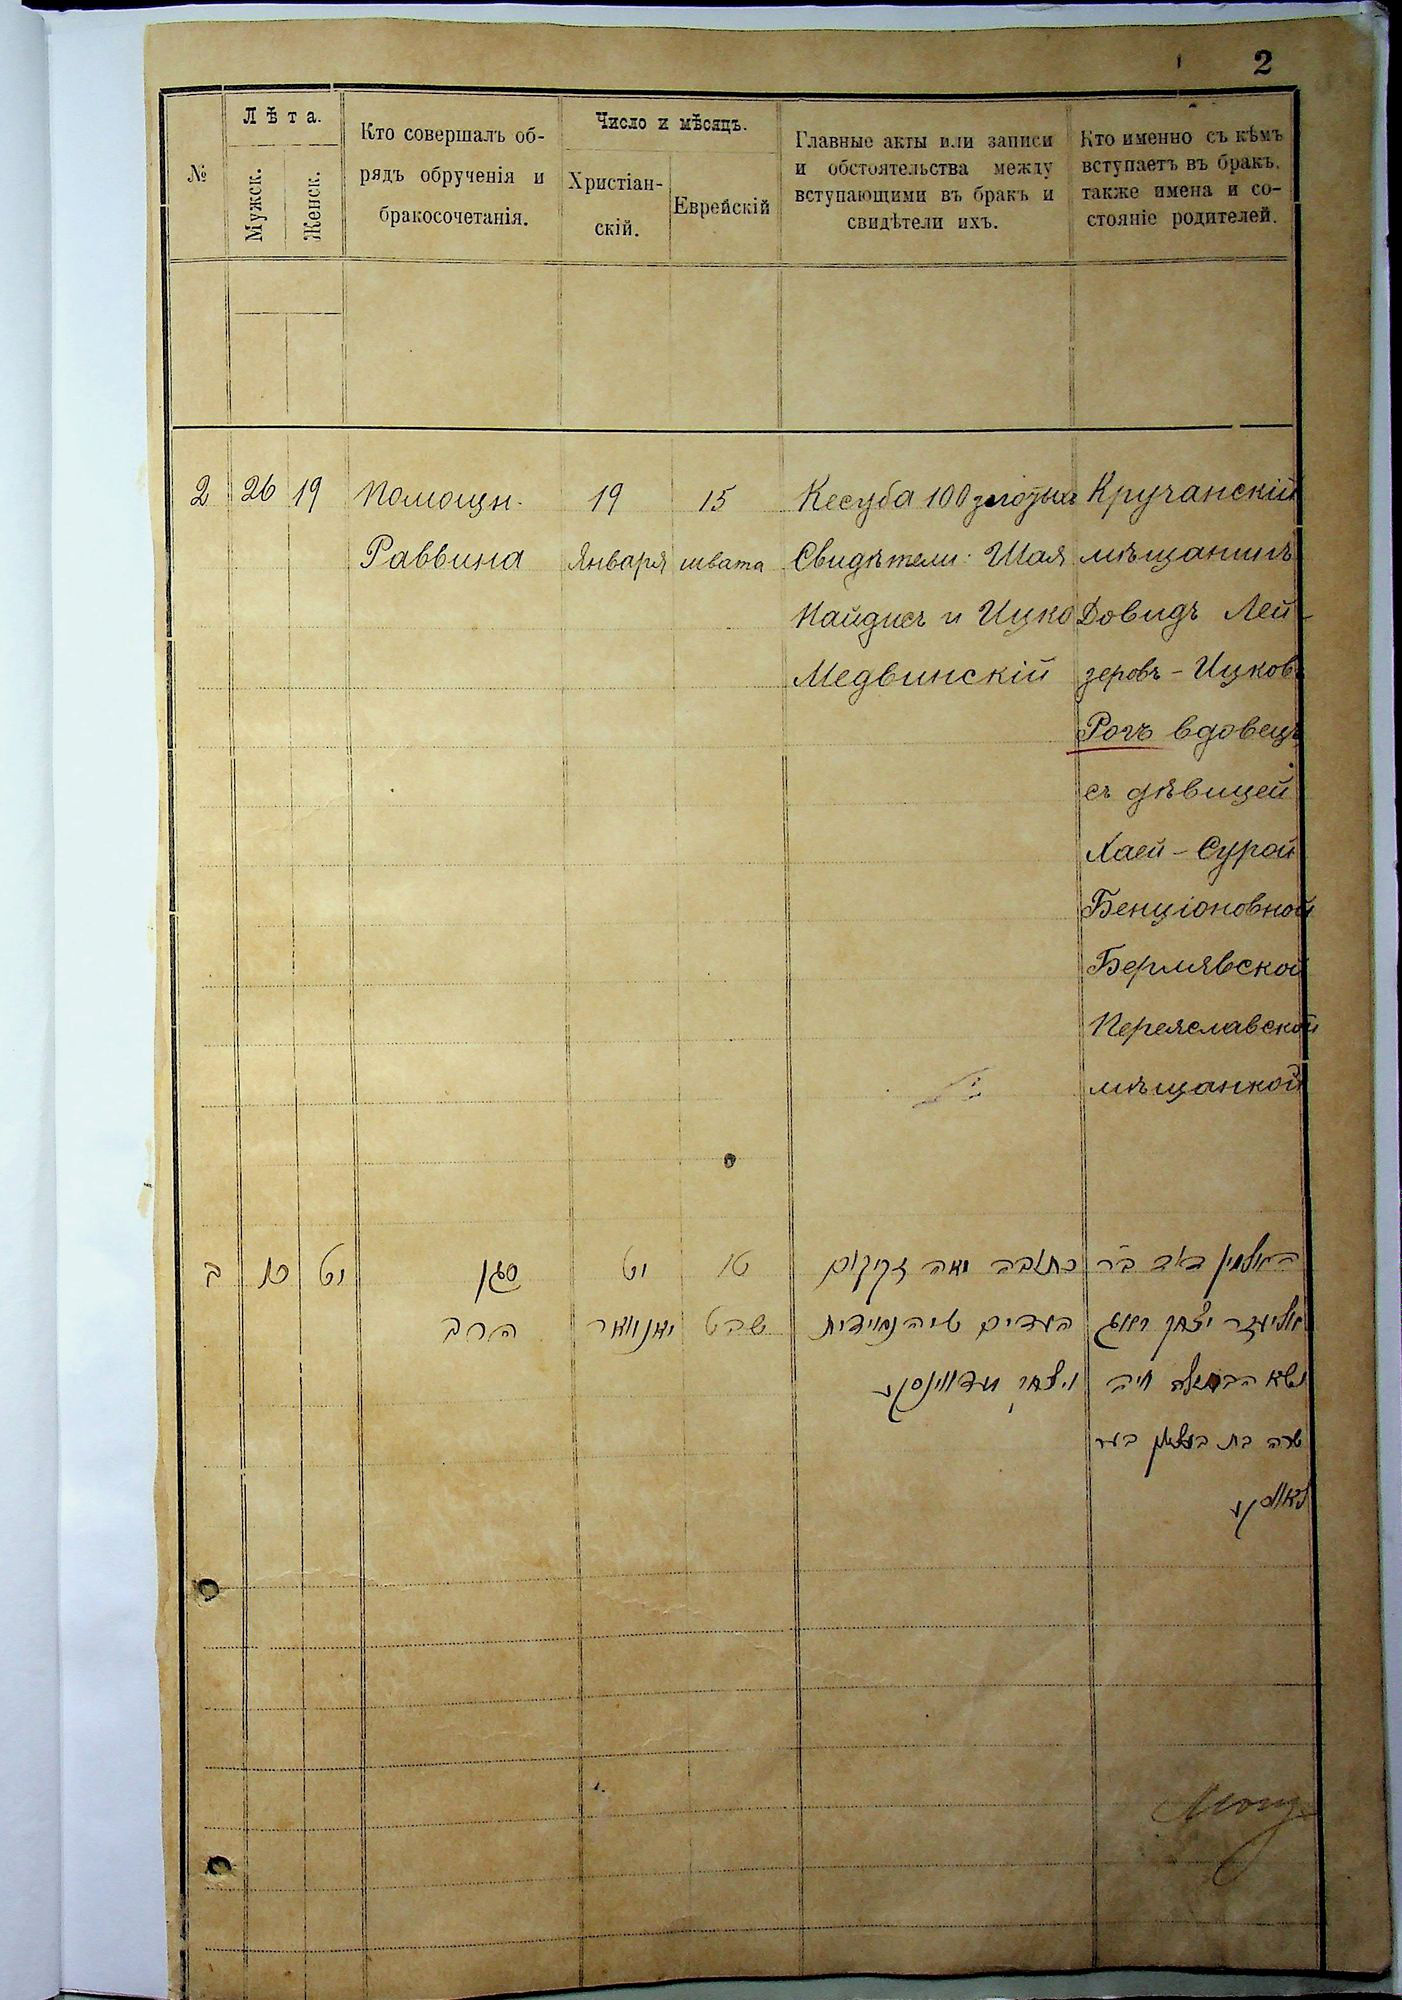 2
№
Лѣта.
Мужск.
Женск.
Кто совершалъ об-
рядъ обрученія и
бракосочетанія.
Число и мѣсяцъ.
Христіан-
скій.
Еврейскій
Главные акты или записи
и обстоятельства между
вступающими въ бракъ и
свидѣтели ихъ.
Кто именно съ кѣмъ
вступаетъ въ бракъ,
также имена и со-
стояніе родителей.
2
26
19
Помощн.
Раввина
19
Января
15
швата
Кесуба 100 золотыхъ
Свидѣтели: Шая
Найдисъ и Ицко
Медвинскій
Кручанскій
мѣщанинъ
Довидъ Лей-
зеровъ-Ицковъ
Рогъ вдовецъ
съ дѣвицей
Хаей-Сурой
Бенціоновной
Бермявской
Переяславской
мѣщанкой
ב
כו
יט
סגן
הרב
יט
יאנוואר
טו
שבט
כתובה מאה זקוקים
העדים
האלמון דוד בר
אליעזר יצחק ראג
נשא הבתולה חיה
שרה בת בנציון